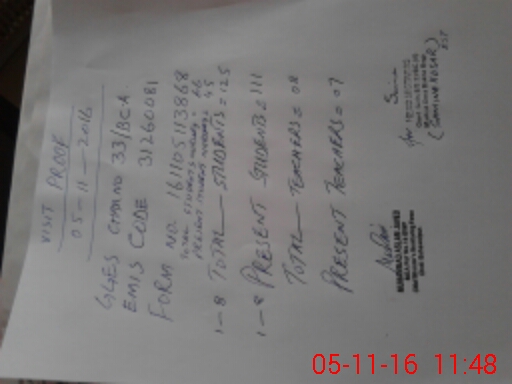 VISIT PROOF
05-11-2016
GGES CHAK NO 33/BCA
EMIS CODE 31260081
FORM NO. 161105113868
TOTAL STUDENTS NURSERY = 46
PRESENT STUDENT NURSERY = 45
1-8 TOTAL STUDENTS = 125
1-8 PRESENT STUDENTS = 111
TOTAL TEACHERS = 08
PRESENT TEACHERS = 07
for
(SAMINA KOSAR)
EST
05-11-16 11:48